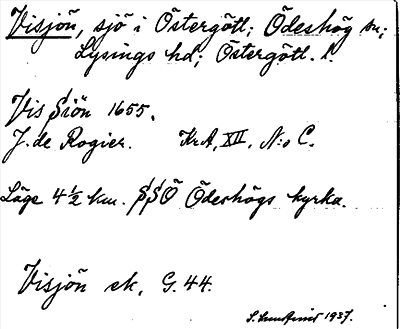 Visjön, sjö i Östergötl; Ödeshög sn;
Lysings hd; Östergötl. l.
Vis Siön 1655.
J. de Rogier. KrA, XII, N:o C.
Läge 4½ km. SSÖ Ödeshögs kyrka.
Visjön ek, G. 44.
1937.